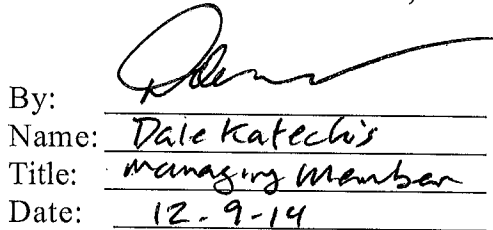 By:
Name: Dale Katechis
Title: Managing Member
Date: 12-9-14